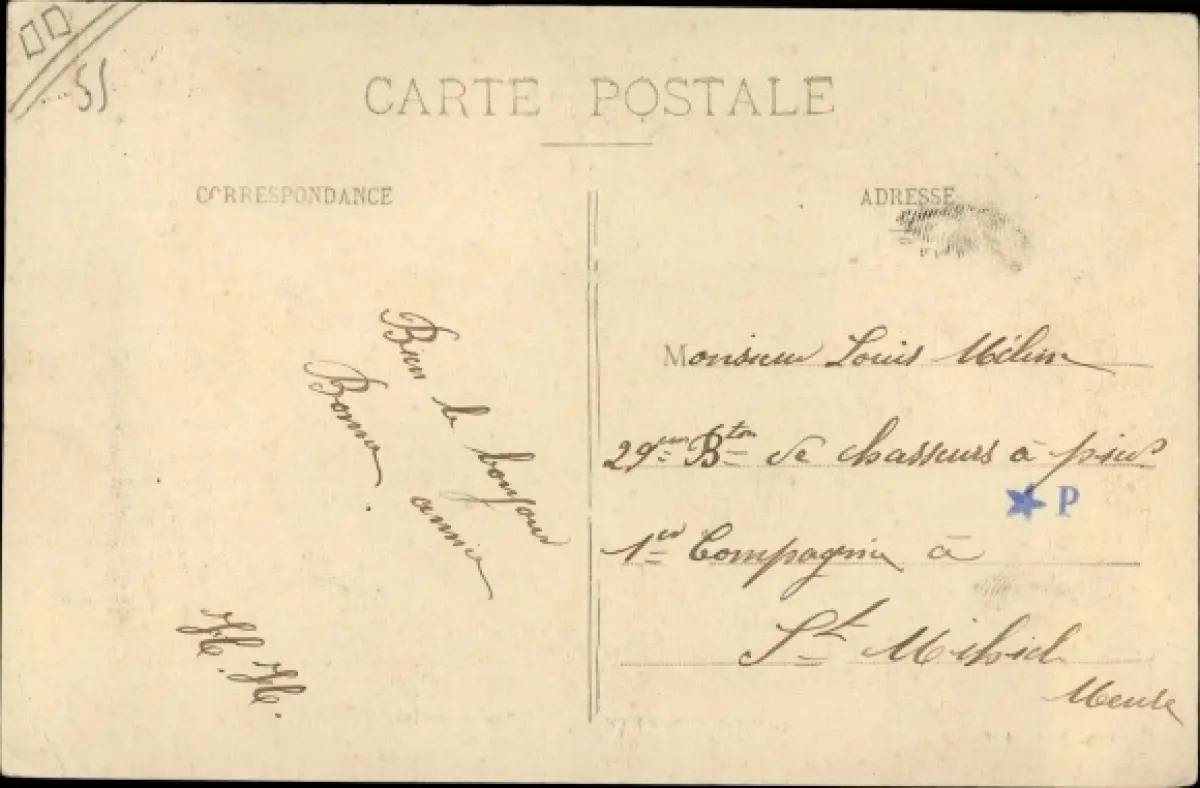 55
CARTE POSTALE
CORRESPONDANCE
Bien le bonjour
Bonne année
H. H.
ADRESSE
Monsieur Louis
29ème Bton de chasseurs à pied
★ P
1ère Compagnie à
St Mihiel
Meuse